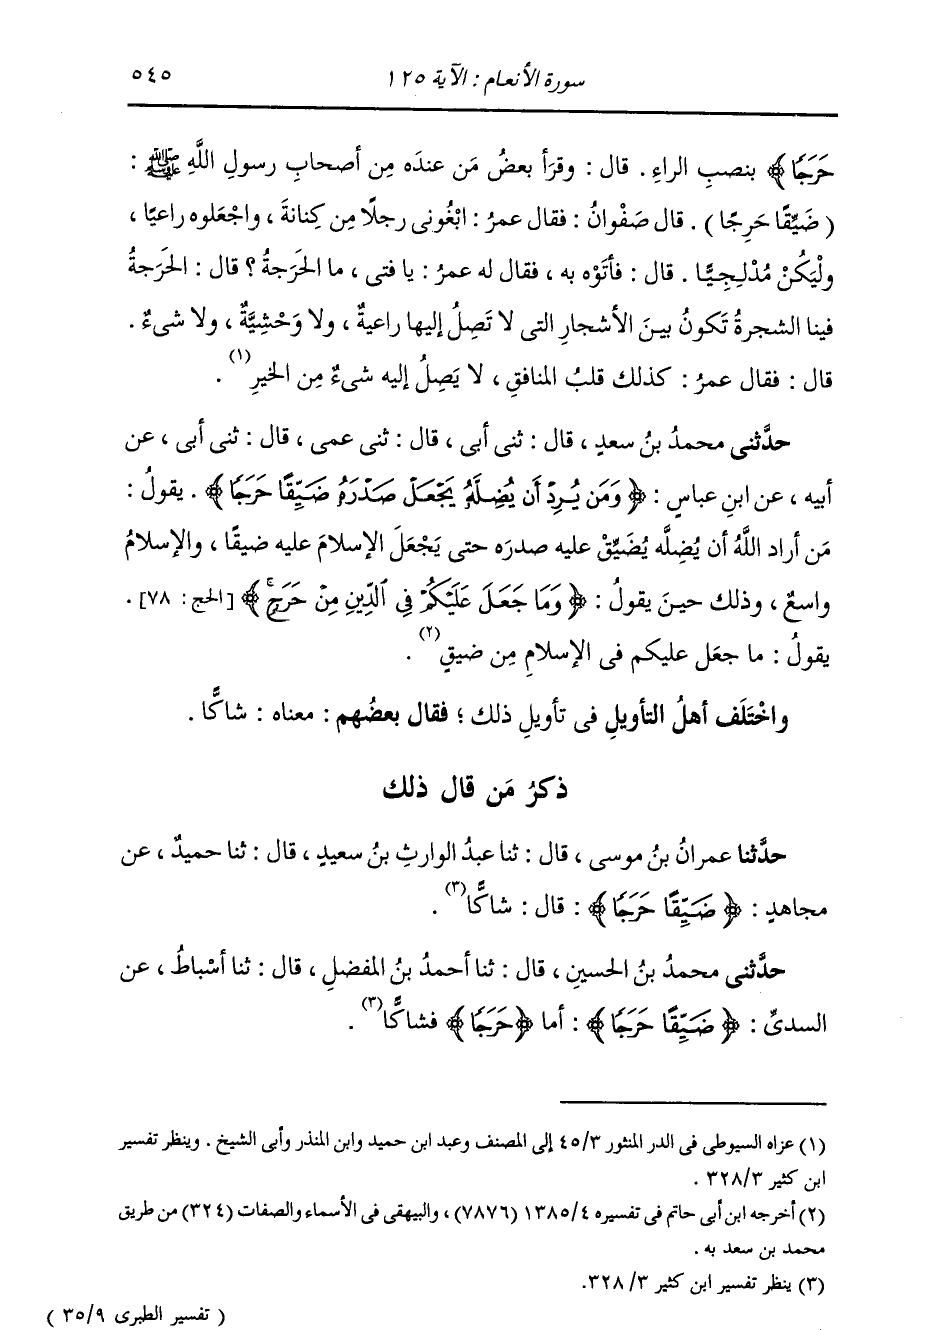 سورة الأنعام : الآية ١٢٥ ٥٤٥
حَرَجًا﴾ بنصبِ الراءِ . قال : وقرَأ بعضُ مَن عندَه مِن أصحابِ رسولِ اللَّهِ ﷺ :
( ضَيِّقًا حَرِجًا ) . قال صَفْوانُ : فقال عمرُ : ابْغُونى رجلًا مِن كِنانةَ ، واجْعَلوه راعيًا ،
ولْيَكُنْ مُدْلِجِيًّا . قال : فأتَوْه به ، فقال له عمرُ : يا فتى ، ما الحَرَجةُ ؟ قال : الحَرَجةُ
فينا الشجرةُ تَكونُ بينَ الأشجارِ التى لا تَصِلُ إليها راعيةٌ ، ولا وَحْشِيَّةٌ ، ولا شىءٌ .
قال : فقال عمرُ : كذلك قلبُ المنافقِ ، لا يَصِلُ إليه شىءٌ مِن الخيرِ(١) .
حدَّثنى محمدُ بنُ سعدٍ ، قال : ثنى أبى ، قال : ثنى عمى ، قال : ثنى أبى ، عن
أبيه ، عن ابنِ عباسٍ : ﴿وَمَن يُرِدْ أَن يُضِلَّهُ يَجْعَلْ صَدْرَهُ ضَيِّقًا حَرَجًا﴾ . يقولُ :
مَن أراد اللَّهُ أن يُضِلَّه يُضَيِّقْ عليه صدرَه حتى يَجْعَلَ الإسلامَ عليه ضيقًا ، والإسلامُ
واسعٌ ، وذلك حينَ يقولُ : ﴿وَمَا جَعَلَ عَلَيْكُمْ فِي ٱلدِّينِ مِنْ حَرَجٍۚ﴾ [الحج : ٧٨] .
يقولُ : ما جعَل عليكم فى الإسلامِ مِن ضيقٍ(٢) .
واخْتَلَف أهلُ التأويلِ فى تأويلِ ذلك ؛ فقال بعضُهم : معناه : شاكًّا .
ذكرُ مَن قال ذلك
حدَّثنا عمرانُ بنُ موسى ، قال : ثنا عبدُ الوارثِ بنُ سعيدٍ ، قال : ثنا حميدٌ ، عن
مجاهدٍ : ﴿ضَيِّقًا حَرَجًا﴾ : قال : شاكًّا(٣) .
حدَّثنى محمدُ بنُ الحسينِ ، قال : ثنا أحمدُ بنُ المفضلِ ، قال : ثنا أسْباطُ ، عن
السدىِّ : ﴿ضَيِّقًا حَرَجًا﴾ : أما ﴿حَرَجًا﴾ فشاكًّا(٣) .
(١) عزاه السيوطى فى الدر المنثور ٤٥/٣ إلى المصنف وعبد ابن حميد وابن المنذر وأبى الشيخ . وينظر تفسير
ابن كثير ٣٢٨/٣ .
(٢) أخرجه ابن أبى حاتم فى تفسيره ١٣٨٥/٤ (٧٨٧٦) ، والبيهقى فى الأسماء والصفات (٣٢٤) من طريق
محمد بن سعد به .
(٣) ينظر تفسير ابن كثير ٣٢٨/٣.
( تفسير الطبرى ٣٥/٩ )